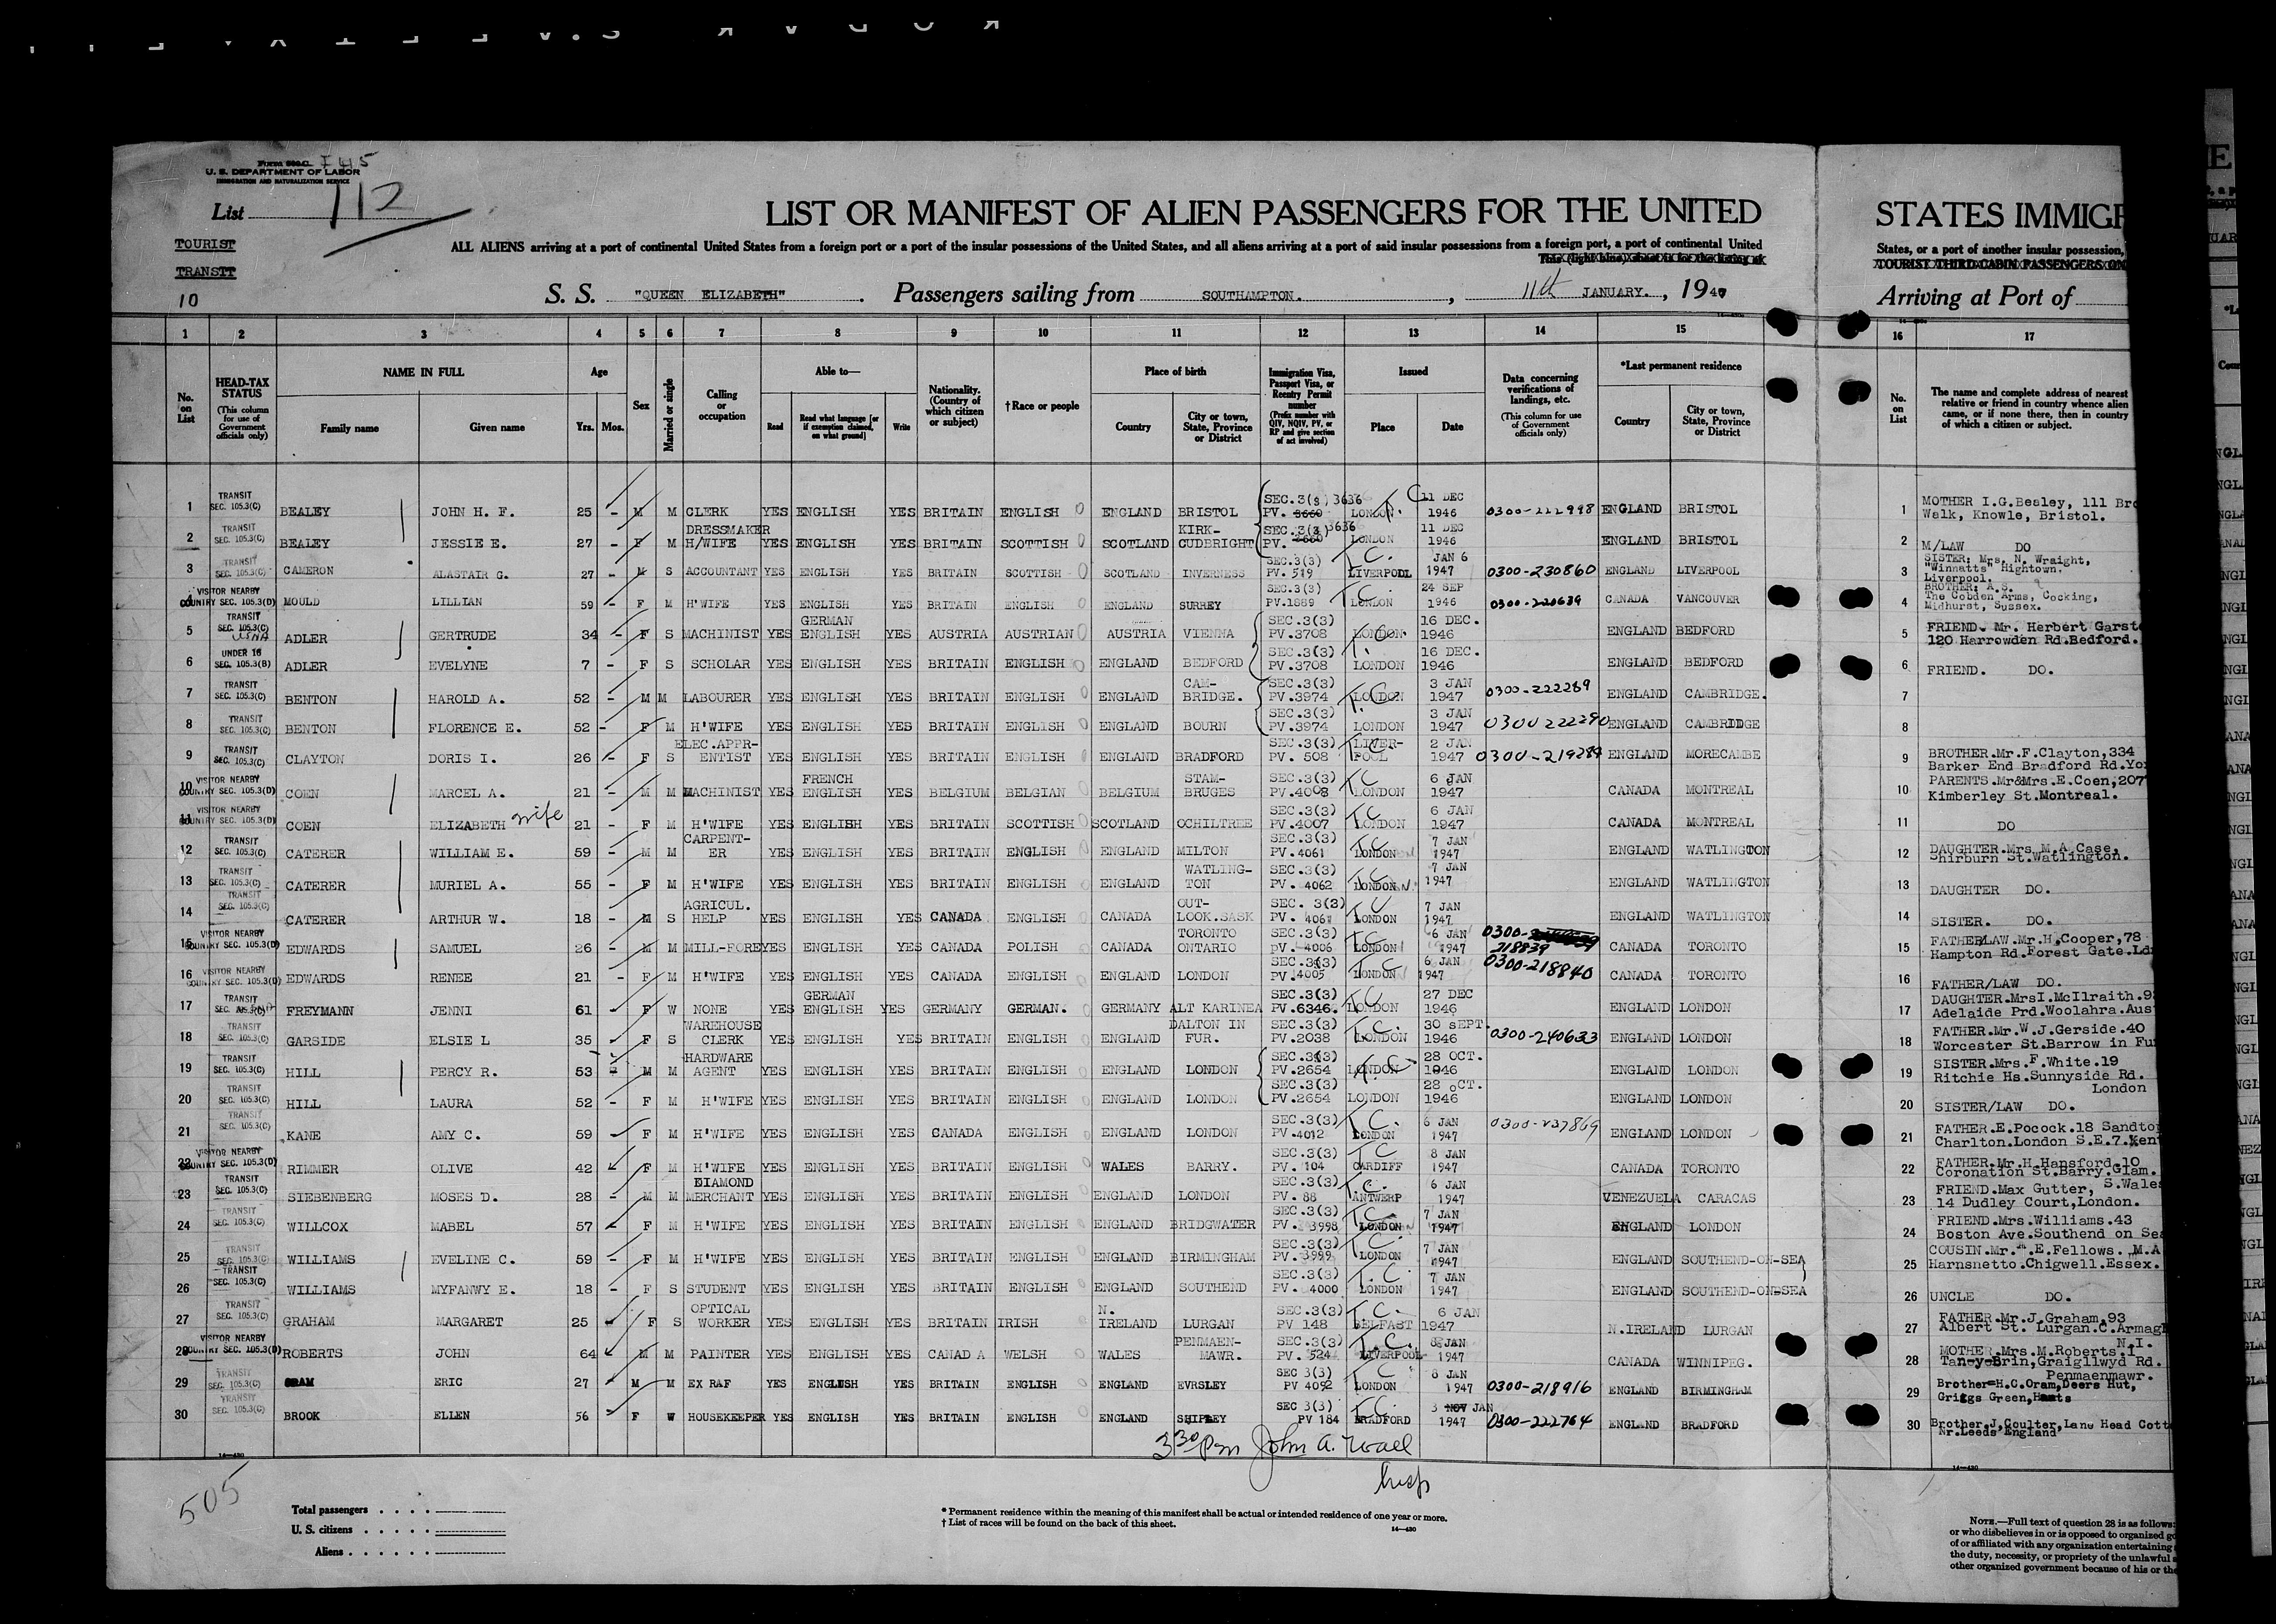 KODAK S.AFETY FILM
Form 500-C I 415
U. S. DEPARTMENT OF LABOR
IMMIGRATION AND NATURALIZATION SERVICE
List 112
TOURIST
TRANSIT
10
LIST OR MANIFEST OF ALIEN PASSENGERS FOR THE UNITED
STATES IMMIGR
ALL ALIENS arriving at a port of continental United States from a foreign port or a port of the insular possessions of the United States, and all aliens arriving at a port of said insular possessions from a foreign port, a port of continental United
States, or a port of another insular possession,
TOURIST THIRD CABIN PASSENGERS ON
S. S. "QUEEN ELIZABETH" Passengers sailing from SOUTHAMPTON. , 11th JANUARY. , 1947
Arriving at Port of
1 2 3 4 5 6 7 8 9 10 11 12 13 14 15 16 17
No. on List
HEAD-TAX STATUS (This column for use of Government officials only)
NAME IN FULL
Family name Given name
Age
Yrs. Mos.
Sex
Married or single
Calling or occupation
Able to—
Read Read what language [or if exemption claimed, on what ground] Write
Nationality. (Country of which citizen or subject)
†Race or people
Place of birth
Country City or town, State, Province or District
Immigration Visa, Passport Visa, or Reentry Permit number (Prefix number with QIV, NQIV, PV, or RP and give section of act involved)
Issued
Place Date
Data concerning verifications of landings, etc. (This column for use of Government officials only)
*Last permanent residence
Country City or town, State, Province or District
No. on List
The name and complete address of nearest relative or friend in country whence alien came, or if none there, then in country of which a citizen or subject.
1 TRANSIT SEC. 105.3(C) BEALEY JOHN H. F. 25 - M M CLERK YES ENGLISH YES BRITAIN ENGLISH ENGLAND BRISTOL SEC.3(3) 3636 PV. 3660 LONDON T.C. 11 DEC 1946 0300-222998 ENGLAND BRISTOL 1 MOTHER I.G.Bealey, 111 Bro Walk, Knowle, Bristol.
2 TRANSIT SEC. 105.3(C) BEALEY JESSIE E. 27 - F M DRESSMAKER H/WIFE YES ENGLISH YES BRITAIN SCOTTISH SCOTLAND KIRK-CUDBRIGHT SEC.3(3) 3636 PV. 3660 LONDON 11 DEC 1946 ENGLAND BRISTOL 2 M/LAW DO
3 TRANSIT SEC. 105.3(C) CAMERON ALASTAIR G. 27 - M S ACCOUNTANT YES ENGLISH YES BRITAIN SCOTTISH SCOTLAND INVERNESS SEC.3(3) PV. 519 LIVERPOOL T.C. JAN 6 1947 0300-230860 ENGLAND LIVERPOOL 3 SISTER; Mrs. N. Wraight, "Winnatts" Hightown. Liverpool.
4 VISITOR NEARBY COUNTRY SEC. 105.3(D) MOULD LILLIAN 59 - F M H'WIFE YES ENGLISH YES BRITAIN ENGLISH ENGLAND SURREY SEC.3(3) PV.1889 LONDON T.C. 24 SEP 1946 0300-220639 CANADA VANCOUVER 4 BROTHER; A.S. The Cobden Arms, Cocking, Midhurst, Sussex.
5 TRANSIT SEC. 105.3(C) USNA ADLER GERTRUDE 34 - F S MACHINIST YES GERMAN ENGLISH YES AUSTRIA AUSTRIAN AUSTRIA VIENNA SEC.3(3) PV.3708 LONDON T.C. 16 DEC. 1946 ENGLAND BEDFORD 5 FRIEND. Mr. Herbert Garst 120 Harrowden Rd.Bedford.
6 UNDER 16 SEC. 105.3(B) ADLER EVELYNE 7 - F S SCHOLAR YES ENGLISH YES BRITAIN ENGLISH ENGLAND BEDFORD SEC.3(3) PV.3708 LONDON 16 DEC. 1946 ENGLAND BEDFORD 6 FRIEND. DO.
7 TRANSIT SEC. 105.3(C) BENTON HAROLD A. 52 - M M LABOURER YES ENGLISH YES BRITAIN ENGLISH ENGLAND CAM-BRIDGE. SEC.3(3) PV.3974 LONDON T.C. 3 JAN 1947 0300-222289 ENGLAND CAMBRIDGE. 7
8 TRANSIT SEC. 105.3(C) BENTON FLORENCE E. 52 - F M H'WIFE YES ENGLISH YES BRITAIN ENGLISH ENGLAND BOURN SEC.3(3) PV.3974 LONDON 3 JAN 1947 0300 222290 ENGLAND CAMBRIDGE 8
9 TRANSIT SEC. 105.3(C) CLAYTON DORIS I. 26 - F S ELEC.APPR-ENTIST YES ENGLISH YES BRITAIN ENGLISH ENGLAND BRADFORD SEC.3(3) PV. 508 LIVER-POOL T.C. 2 JAN 1947 0300-219289 ENGLAND MORECAMBE 9 BROTHER.Mr.F.Clayton,334 Barker End Bradford Rd.Yo
10 VISITOR NEARBY COUNTRY SEC. 105.3(D) COEN MARCEL A. 21 - M M MACHINIST YES FRENCH ENGLISH YES BELGIUM BELGIAN BELGIUM STAM-BRUGES SEC.3(3) PV.4008 LONDON T.C 6 JAN 1947 CANADA MONTREAL 10 PARENTS.Mr&Mrs.E.Coen,207 Kimberley St.Montreal.
11 VISITOR NEARBY COUNTRY SEC. 105.3(D) COEN ELIZABETH wife 21 - F M H'WIFE YES ENGLISH YES BRITAIN SCOTTISH SCOTLAND OCHILTREE SEC.3(3) PV.4007 LONDON T.C 6 JAN 1947 CANADA MONTREAL 11 DO
12 TRANSIT SEC. 105.3(C) CATERER WILLIAM E. 59 - M M CARPENT-ER YES ENGLISH YES BRITAIN ENGLISH ENGLAND MILTON SEC.3(3) PV.4061 LONDON T.C 7 JAN 1947 ENGLAND WATLINGTON 12 DAUGHTER.Mrs M.A.Case, Shirburn St.Watlington.
13 TRANSIT SEC. 105.3(C) CATERER MURIEL A. 55 - F M H'WIFE YES ENGLISH YES BRITAIN ENGLISH ENGLAND WATLING-TON SEC.3(3) PV. 4062 LONDON T.C 7 JAN 1947 ENGLAND WATLINGTON 13 DAUGHTER DO.
14 TRANSIT SEC. 105.3(C) CATERER ARTHUR W. 18 - M S AGRICUL. HELP YES ENGLISH YES CANADA ENGLISH CANADA OUT-LOOK.SASK SEC. 3(3) PV. LONDON T.C 7 JAN 1947 ENGLAND WATLINGTON 14 SISTER. DO.
15 VISITOR NEARBY COUNTRY SEC. 105.3(D) EDWARDS SAMUEL 26 - M M MILL-FORE YES ENGLISH YES CANADA POLISH CANADA TORONTO ONTARIO SEC.3(3) PV. 4006 LONDON T.C 6 JAN 1947 0300- 218839 CANADA TORONTO 15 FATHER/LAW.Mr.H.Cooper,78 Hampton Rd.Forest Gate.Ld
16 VISITOR NEARBY COUNTRY SEC. 105.3(D) EDWARDS RENEE 21 - F M H'WIFE YES ENGLISH YES CANADA ENGLISH ENGLAND LONDON SEC.3(3) PV.4005 LONDON T.C 6 JAN 1947 0300-218840 CANADA TORONTO 16 FATHER/LAW DO.
17 TRANSIT SEC. 105.3(C) FREYMANN JENNI 61 F W NONE YES GERMAN ENGLISH YES GERMANY GERMAN. GERMANY ALT KARINEA SEC.3(3) PV.6346. LONDON T.C 27 DEC 1946 ENGLAND LONDON 17 DAUGHTER.MrsI.McIlraith.9 Adelaide Prd.Woolahra.Aus
18 TRANSIT SEC. 105.3(C) GARSIDE ELSIE L 35 F S WAREHOUSE CLERK YES ENGLISH YES BRITAIN ENGLISH ENGLAND DALTON IN FUR. SEC.3(3) PV.2038 LONDON T.C. 30 SEPT. 1946 0300-240633 ENGLAND LONDON 18 FATHER.Mr.W.J.Gerside.40 Worcester St.Barrow in Fu
19 TRANSIT SEC. 105.3(C) HILL PERCY R. 53 - M M HARDWARE AGENT YES ENGLISH YES BRITAIN ENGLISH ENGLAND LONDON SEC.3(3) PV.2654 LONDON T.C. 28 OCT. 1946 ENGLAND LONDON 19 SISTER.Mrs.F.White.19 Ritchie Hs.Sunnyside Rd. London
20 TRANSIT SEC. 105.3(C) HILL LAURA 52 - F M H'WIFE YES ENGLISH YES BRITAIN ENGLISH ENGLAND LONDON SEC.3(3) PV.2654 LONDON 28 OCT. 1946 ENGLAND LONDON 20 SISTER/LAW DO.
21 TRANSIT SEC. 105.3(C) KANE AMY C. 59 F M H'WIFE YES ENGLISH YES CANADA ENGLISH ENGLAND LONDON SEC.3(3) PV.4012 LONDON T.C. 6 JAN 1947 0300-237869 ENGLAND LONDON 21 FATHER.E.Pocock.18 Sandto Charlton.London S.E.7.Kent
22 VISITOR NEARBY COUNTRY SEC. 105.3(D) RIMMER OLIVE 42 F M H'WIFE YES ENGLISH YES BRITAIN ENGLISH WALES BARRY. SEC.3(3) PV. 104 CARDIFF T C 8 JAN 1947 CANADA TORONTO 22 FATHER.Mr.H.Hansford.10 Coronation St.Barry.Glam. S.Wales
23 TRANSIT SEC. 105.3(C) SIEBENBERG MOSES D. 28 - M M DIAMOND MERCHANT YES ENGLISH YES BRITAIN ENGLISH ENGLAND LONDON SEC.3(3) PV. 88 ANTWERP T.C. 6 JAN 1947 VENEZUELA CARACAS 23 FRIEND.Max Gutter, 14 Dudley Court,London.
24 TRANSIT SEC. 105.3(C) WILLCOX MABEL 57 F M H'WIFE YES ENGLISH YES BRITAIN ENGLISH ENGLAND BRIDGWATER SEC.3(3) PV. 3998 LONDON T.C. 7 JAN 1947 ENGLAND LONDON 24 FRIEND.Mrs.Williams.43 Boston Ave.Southend on Sea
25 TRANSIT SEC. 105.3(C) WILLIAMS EVELINE C. 59 - F M H'WIFE YES ENGLISH YES BRITAIN ENGLISH ENGLAND BIRMINGHAM SEC.3(3) PV. 3999 LONDON T.C. 7 JAN 1947 ENGLAND SOUTHEND-ON-SEA 25 COUSIN.Mr. .E.Fellows. M.A Harnsnetto.Chigwell.Essex.
26 TRANSIT SEC. 105.3(C) WILLIAMS MYFANWY E. 18 - F S STUDENT YES ENGLISH YES BRITAIN ENGLISH ENGLAND SOUTHEND SEC.3(3) PV. 4000 LONDON T.C 7 JAN 1947 ENGLAND SOUTHEND-ON-SEA 26 UNCLE DO.
27 TRANSIT SEC. 105.3(C) GRAHAM MARGARET 25 F S OPTICAL WORKER YES ENGLISH YES BRITAIN IRISH N. IRELAND LURGAN SEC.3(3) PV 148 BELFAST T.C. 6 JAN 1947 N.IRELAND LURGAN 27 FATHER.Mr.J.Graham,93 Albert St. Lurgan.C.Armagh N.I.
28 VISITOR NEARBY COUNTRY SEC. 105.3(D) ROBERTS JOHN 64 M M PAINTER YES ENGLISH YES CANAD A WELSH WALES PENMAEN-MAWR. SEC.3(3) PV. 524 LIVERPOOL T.C. 8 JAN 1947 CANADA WINNIPEG. 28 MOTHER.Mrs.M.Roberts.1 Tan-y-Brin,Graigllwyd Rd. Penmaenmawr.
29 TRANSIT SEC. 105.3(C) ORAM ERIC 27 M M EX RAF YES ENGLISH YES BRITAIN ENGLISH ENGLAND EVRSLEY SEC 3(3) PV 4092 LONDON T C 8 JAN 1947 0300-218916 ENGLAND BIRMINGHAM 29 Brother=H.C.Oram,Deers Hut, Griggs Green,Hants
30 TRANSIT SEC. 105.3(C) BROOK ELLEN 56 F W HOUSEKEEPER YES ENGLISH YES BRITAIN ENGLISH ENGLAND SHIPLEY SEC 3(3) PV 184 BRADFORD T.C. 3 NOV JAN 1947 0300-222764 ENGLAND BRADFORD 30 Brother,J,Coulter,Lane Head Cott Nr.Leeds England
3 30 pm John A.
Insp
14—430
505
Total passengers . . . .
U. S. citizens . . . . .
Aliens . . . . . .
* Permanent residence within the meaning of this manifest shall be actual or intended residence of one year or more.
† List of races will be found on the back of this sheet.
14—430
NOTE.—Full text of question 28 is as follows:
or who disbelieves in or is opposed to organized go
of or affiliated with any organization entertaining
the duty, necessity, or propriety of the unlawful
other organized government because of his or the